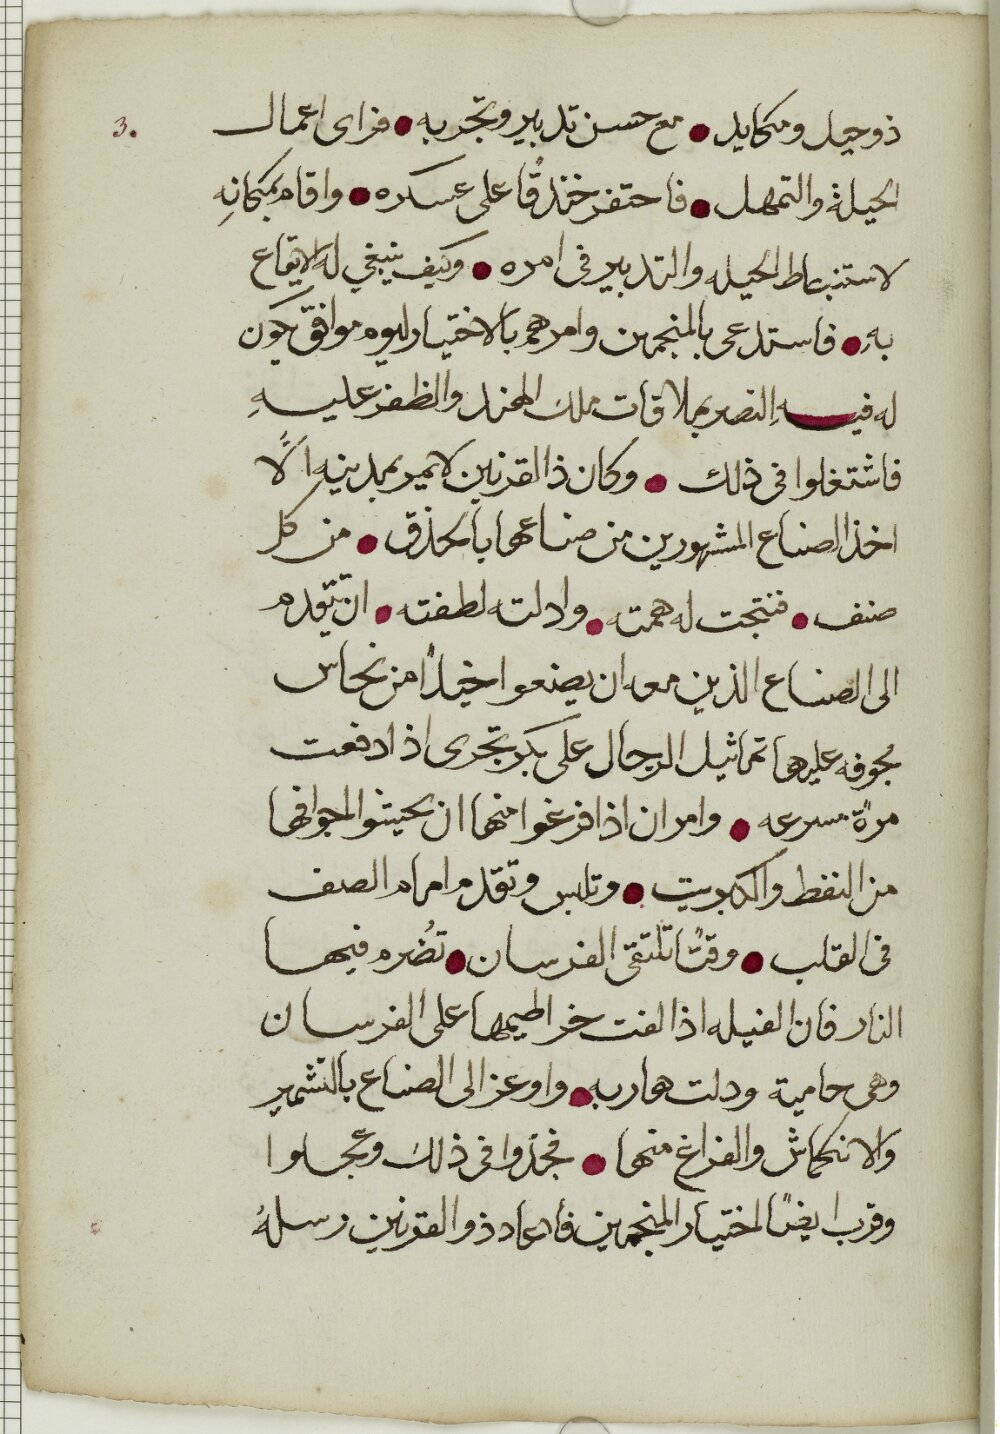 3.
ذو حيل ومكايد • مع حسن تدبير وتجربه • فراى اعمال
الحيلة والتمهل • فاحتفر خندقًا على عسكره • واقام بمكانهِ
لاستنباط الحيله والتدبير فى امره • وكيف ينبغي له الايقاع
بهِ • فاستدعى بالمنجمين وامرهم بالاختيار ليوم موافق يكون
له فيـــهِ النصر بملاقات ملك الهند والظفر عليـهِ
فاشتغلوا فى ذلك • وكان ذا القرنين لا يمير بمدينه الَّا
اخذ الصناع المشهورين من صناعها بالحذق • من كل
صنف • فنتجت له همته • وادلته لطفته • ان يتقدم
الى الصناع الذين معه ان يصنعوا خيلًا من نحاس
مجوفه عليها تماثيل الرجال على بكر تجرى اذا دفعت
مرةً مسرعه • وامر ان اذا فرغوا منها ان يحيشوا اجوافها
من النفط والكبريت • وتلبس وتقدم امام الصف
فى القلب • وقتًا تلتقى الفرسان • تضُرم فيهـا
النار فان الفيله اذا لفت خراطيمها على الفرسان
وهى حامية ودلت هاربه • واوعز الى الصناع بالتشمير
والانكماش والفراغ منها • فجدوا فى ذلك وعجلوا
وقرب ايضًا اختيار المنجمين فاعاد ذو القرنين رسلهُ